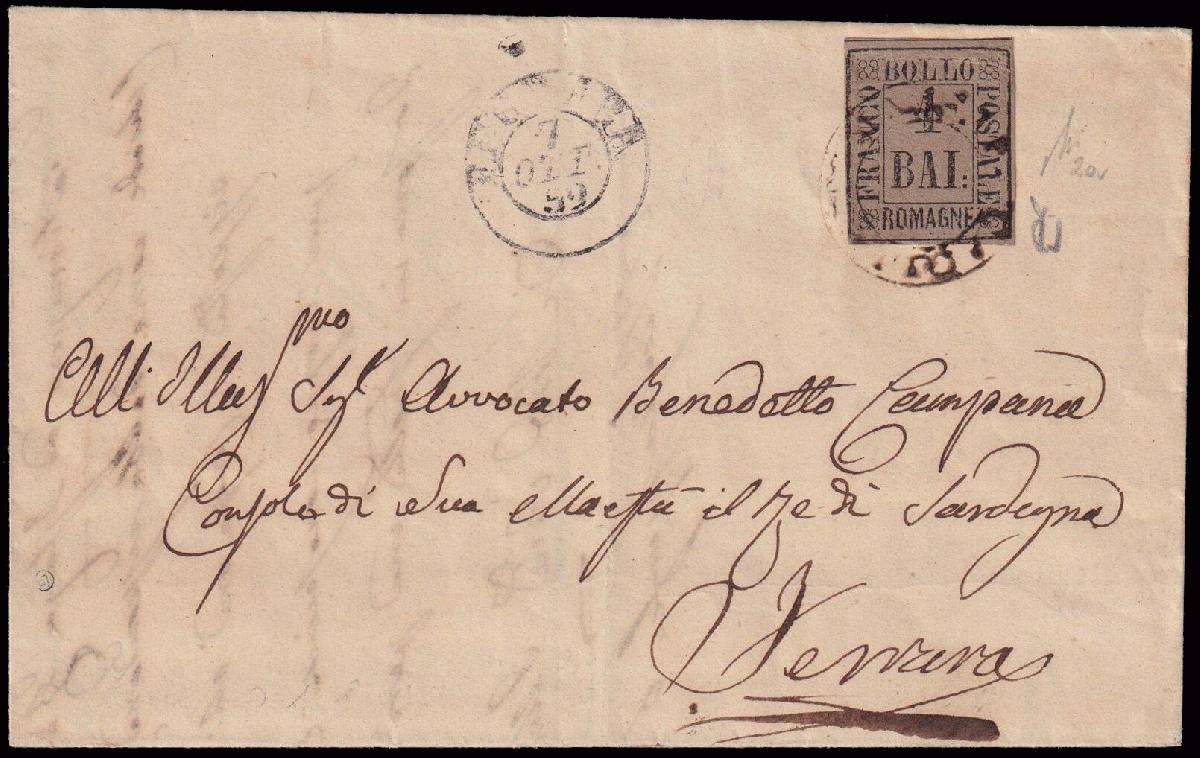 BOLLO
FRANCO
POSTALE
4
BAI:
ROMAGNE
7
OTT.
59
All' Illus^mo Sig^r Avvocato Benedetto Campana
Console di Sua Maestà il Re di Sardegna
Ferrara